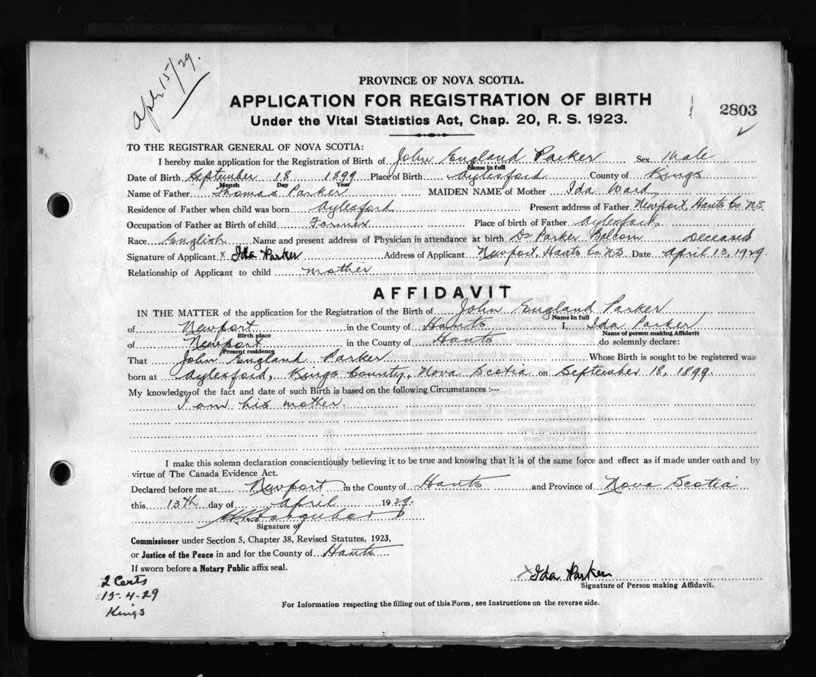 Apl 15/29.
PROVINCE OF NOVA SCOTIA.
APPLICATION FOR REGISTRATION OF BIRTH
Under the Vital Statistics Act, Chap. 20, R. S. 1923.
2803
TO THE REGISTRAR GENERAL OF NOVA SCOTIA:
I hereby make application for the Registration of Birth of John England Parker Sex Male
Name in full
Date of Birth September 18 1899 Place of Birth Aylesford County of Kings
Month Day Year
Name of Father Thomas Parker MAIDEN NAME of Mother Ida Ward
Residence of Father when child was born Aylesford Present address of Father Newport, Hants Co N.S.
Occupation of Father at Birth of child Farmer Place of birth of Father Aylesford
Race English Name and present address of Physician in attendance at birth Dr Parker Balcom Deceased
Signature of Applicant X Ida Parker Address of Applicant Newport Hants Co NS Date April 13, 1929.
Relationship of Applicant to child mother
AFFIDAVIT
IN THE MATTER of the application for the Registration of the Birth of John England Parker
Name in full
of Newport in the County of Hants I, Ida Parker
Birth place Name of person making Affidavit
of Newport in the County of Hants do solemnly declare:
Present residence
That John England Parker Whose Birth is sought to be registered was
born at Aylesford, Kings County, Nova Scotia on September 18, 1899.
My knowledge of the fact and date of such Birth is based on the following Circumstances :—
I am his mother.
I make this solemn declaration conscientiously believing it to be true and knowing that it is of the same force and effect as if made under oath and by
virtue of The Canada Evidence Act.
Declared before me at Newport in the County of Hants and Province of Nova Scotia
this 13th day of April 1929.
Signature of
Commissioner under Section 5, Chapter 38, Revised Statutes, 1923,
or Justice of the Peace in and for the County of Hants
If sworn before a Notary Public affix seal.
X Ida Parker
Signature of Person making Affidavit.
2 Certs
15-4-29
Kings
For Information respecting the filling out of this Form, see Instructions on the reverse side.